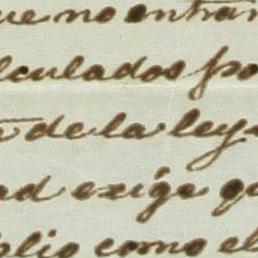 ue no entran
lculados po
de la ley
ad exige q
blio como el